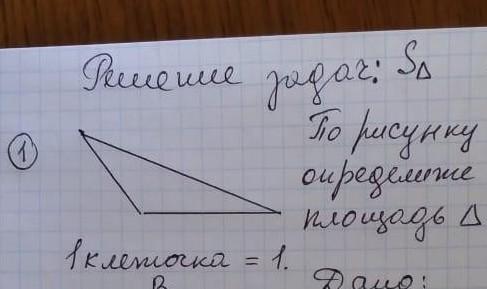 Решение задач: S△
① По рисунку
определите
площадь △
1 клеточка = 1.
B
Дано: